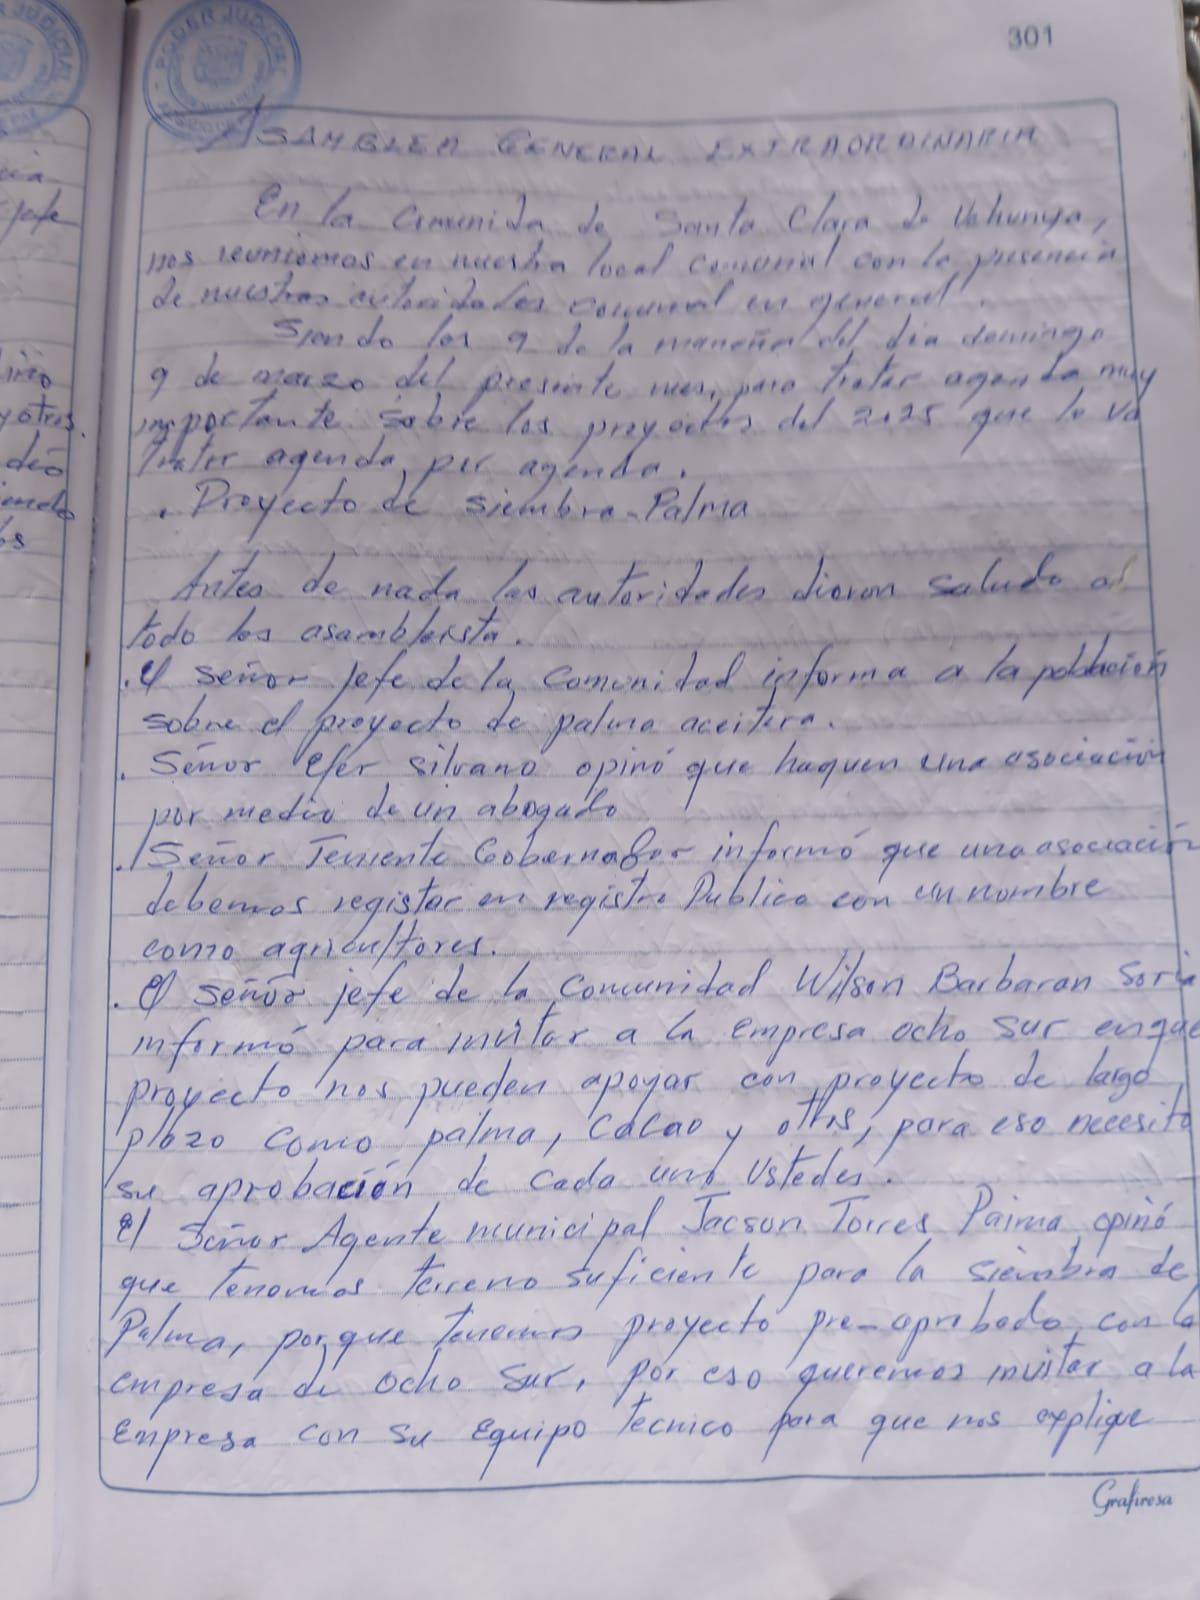 301
PODER JUDICIAL
ASAMBLEA GENERAL EXTRAORDINARIA
En la Comunida de Santa Clara de Uchunya,
nos reunimos en nuestra local comunal con la presencia
de nuestras autoridades comunal en general.
Siendo las 9 de la mañana del dia domingo
9 de marzo del presente mes, para tratar agenda muy
importante sobre los proyectos del 2025 que lo va
tratar agenda por agenda.
. Proyecto de siembra-Palma
Antes de nada las autoridades dieron saludo a
todo los asambleista.
. El señor jefe de la Comunidad informa a la población
sobre el proyecto de palma aceitera.
. Señor Efer silvano opinó que haguen una asociación
por medio de un abogado
. Señor Teniente Gobernador informó que una asociación
debemos registar en registro Publico con un nombre
como agricultores.
. El señor jefe de la Comunidad Wilson Barbaran Soria
informó para invitar a la empresa ocho sur en que
proyecto nos pueden apoyar con proyecto de largo
plazo como palma, cacao y otros, para eso necesito
su aprobación de cada uno Ustedes.
El Señor Agente municipal Jacson Torres Paima opinó
que tenemos terreno suficiente para la siembra de
Palma, porque tenemos proyecto pre-aprobado con la
empresa de Ocho Sur, por eso queremos invitar a la
Empresa con su Equipo Tecnico para que nos explique
Grafirosa